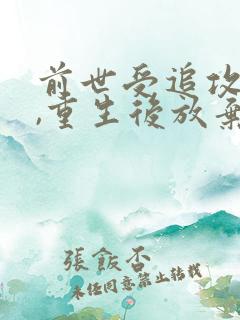 前世受追攻
,重生後放棄
張飯否
未經同意禁止轉載